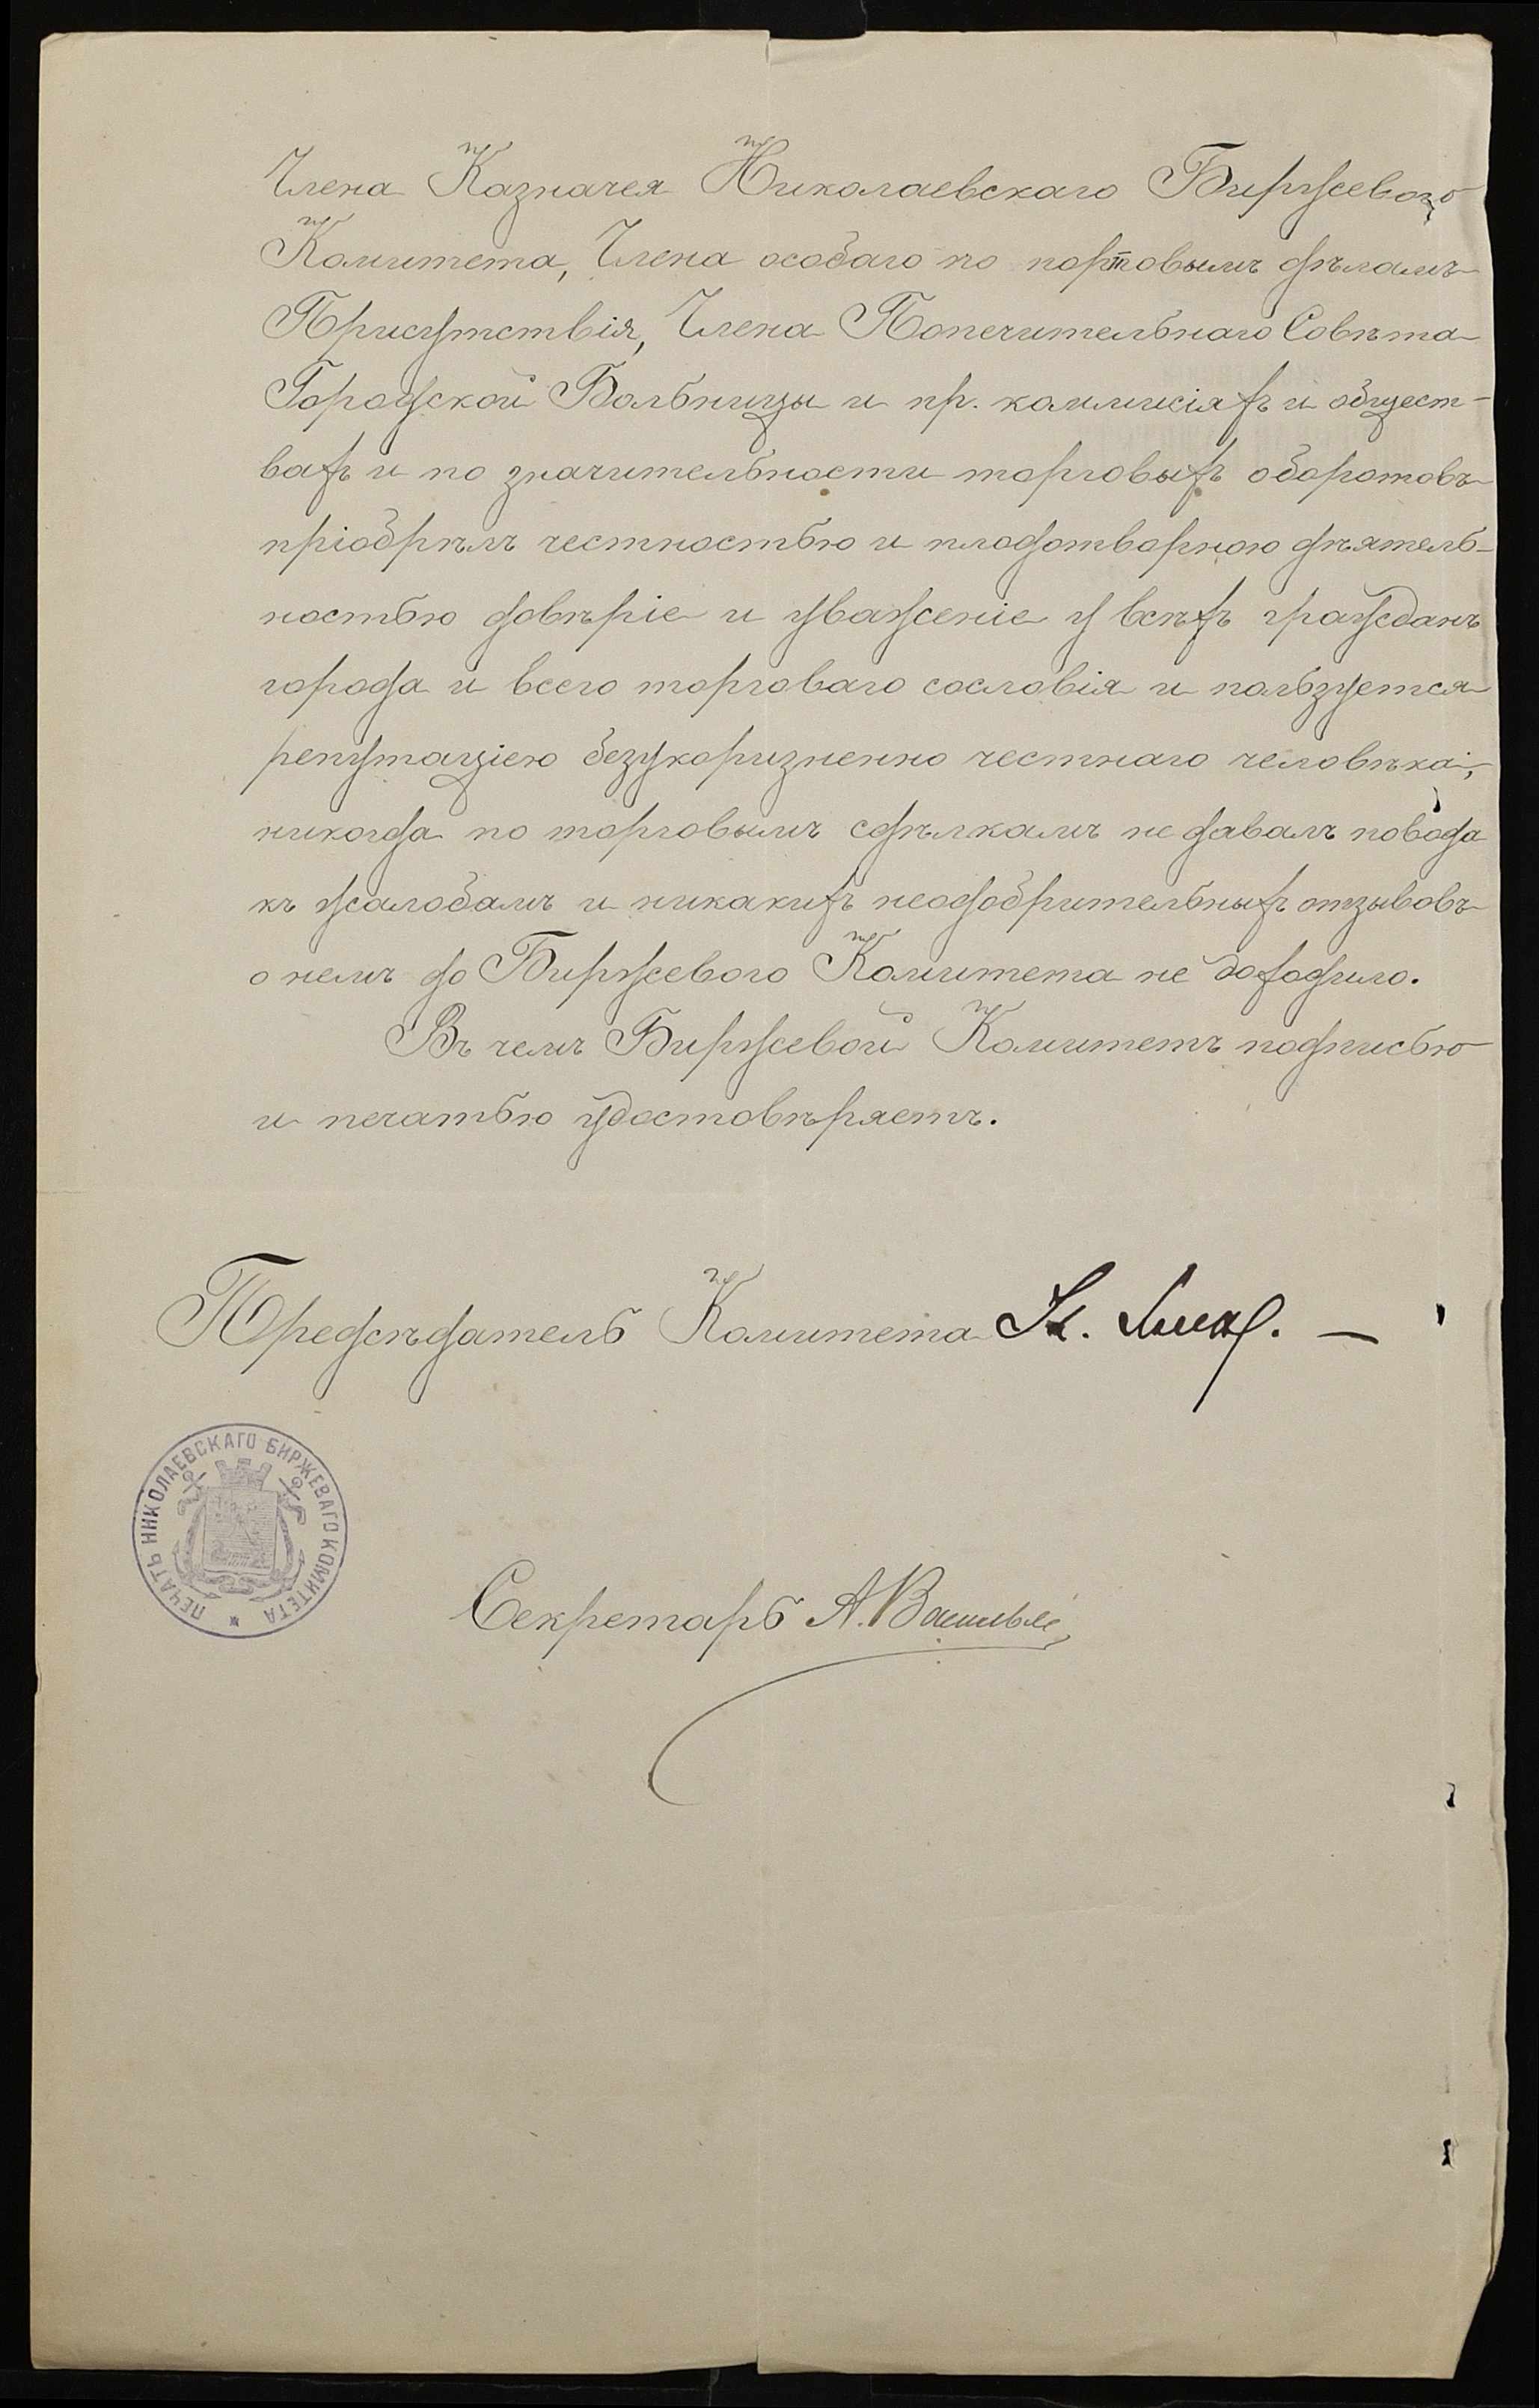 Члена Казначея Николаевскаго Биржевого
Комитета, Члена особаго по портовымъ дѣламъ
Присутствія, Члена Попечительнаго Совѣта
Городской Больницы и пр. коммисіяхъ и общест-
вахъ и по значительности торговыхъ оборотовъ
пріобрѣлъ честностью и плодотворною дѣятель-
ностью довѣріе и уваженіе у всѣхъ гражданъ
города и всего торговаго сословія и пользуется
репутаціею безукоризненно честнаго человѣка;
никогда по торговымъ сдѣлкамъ не давалъ повода
къ жалобамъ и никакихъ неодобрительныхъ отзывовъ
о немъ до Биржевого Комитета не доходило.
Въ чемъ Биржевой Комитетъ подписью
и печатью удостовѣряетъ.
Предсѣдатель Комитета
ПЕЧАТЬ НИКОЛАЕВСКАГО БИРЖЕВАГО КОМИТЕТА
Секретарь А.